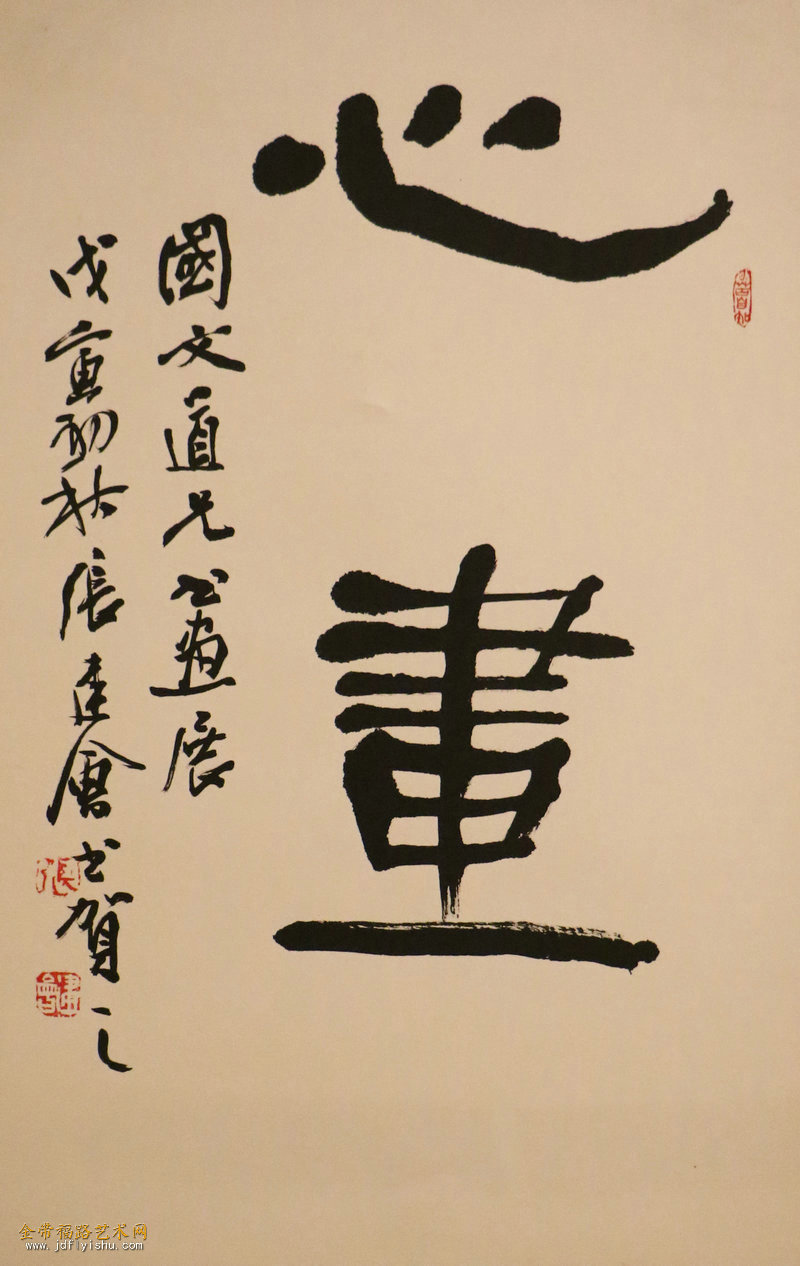 心畫
國文道兄书畫展
戊寅初秋張建會书賀之
張
金带福路艺术网
www.jdflyishu.com